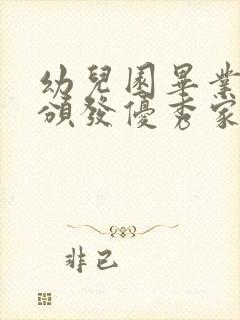 幼兒園畢業
頒發優秀家
非已